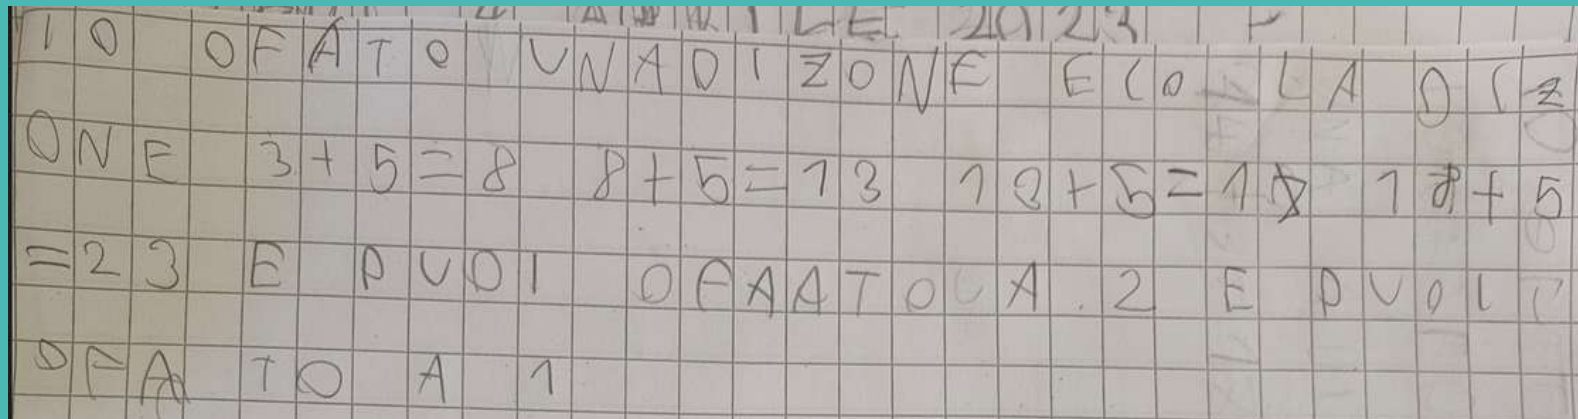 APRILE 2023
IO OFATO UNADIZONE ECO LA DIZ
ONE 3+5=8 8+5=13 13+5=18 18+5
=23 E PUOI OFAATO A 2 E PUOI
OFA TO A 1